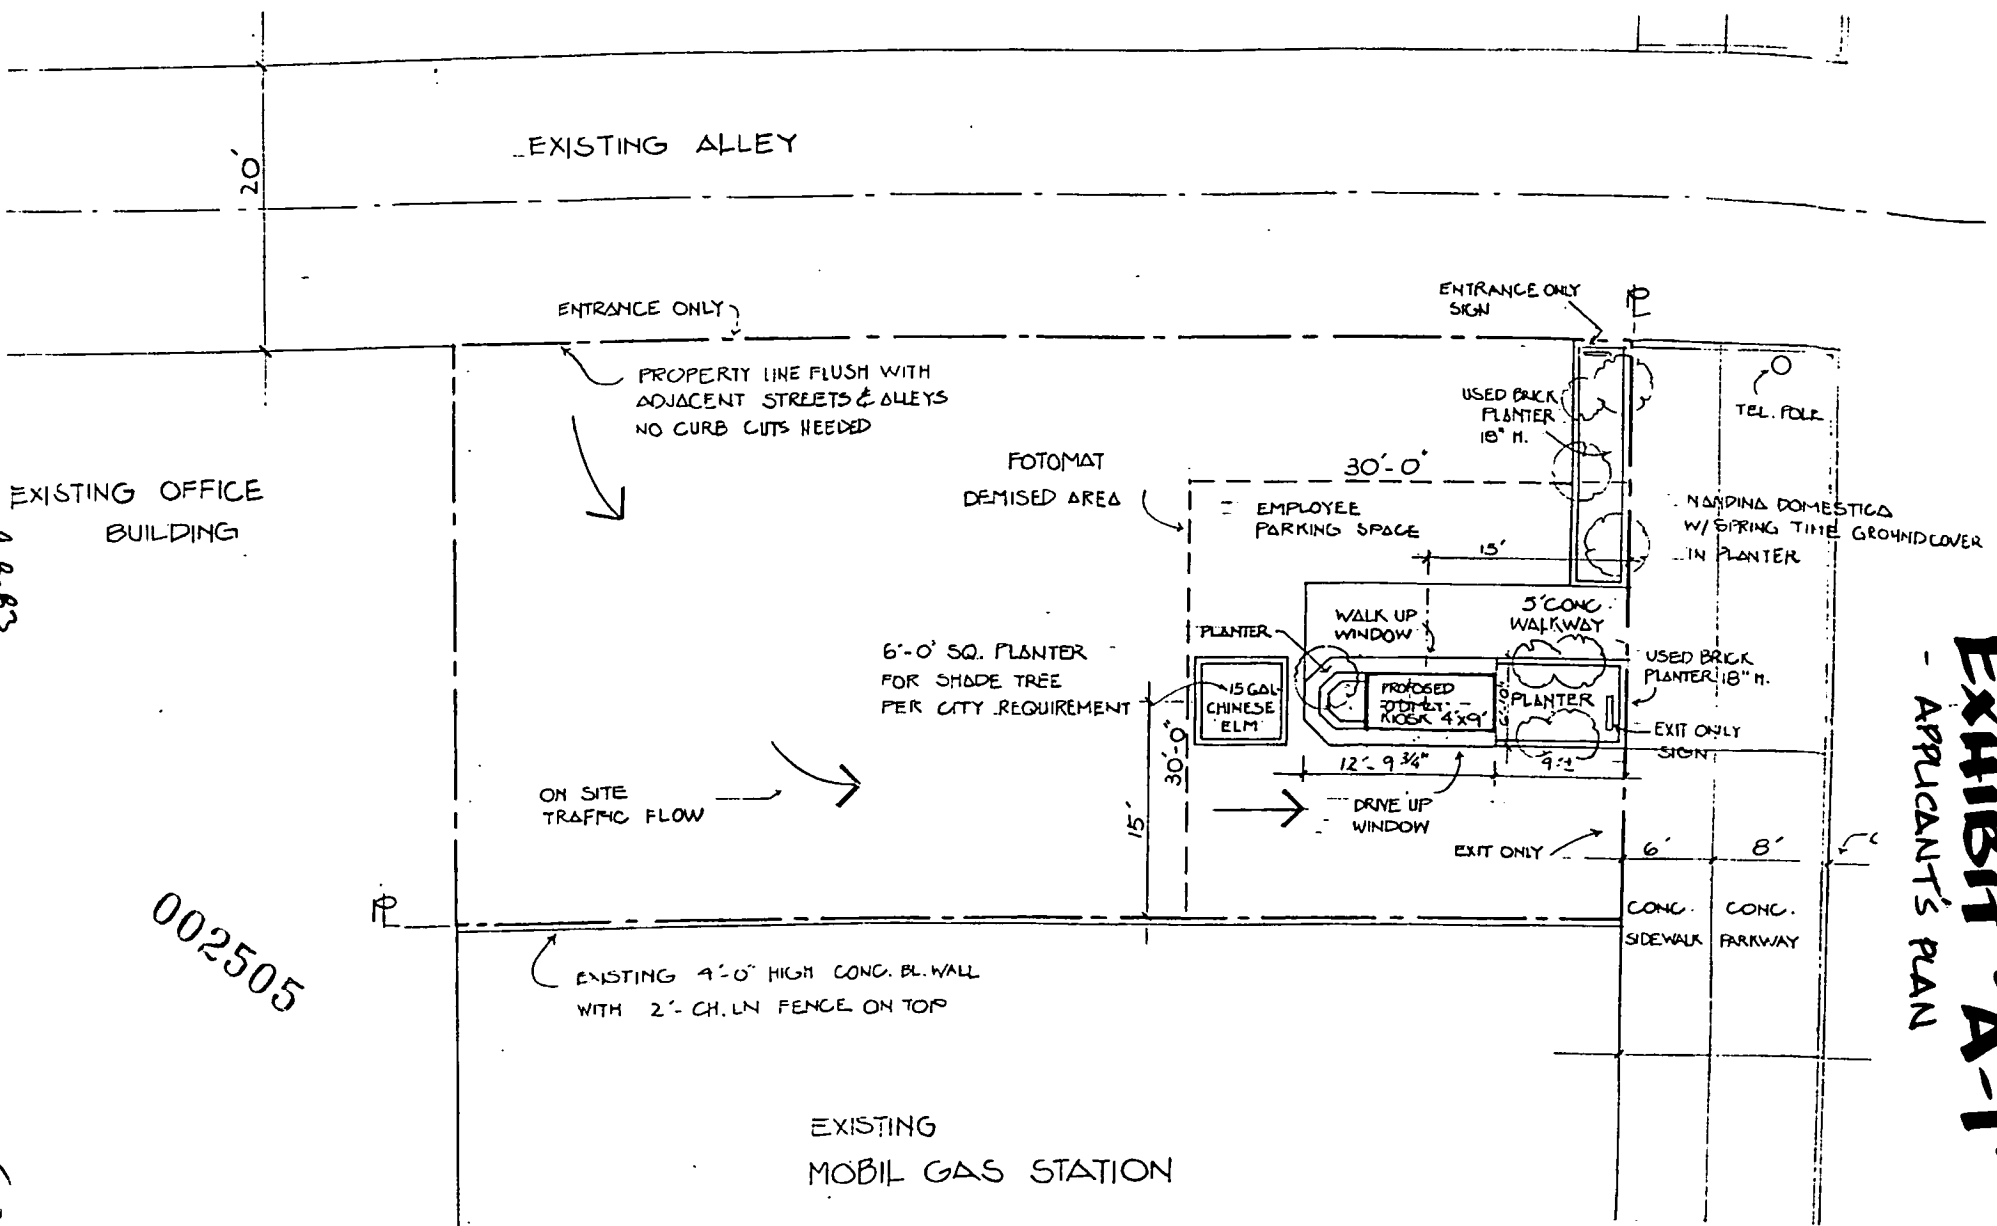 EXISTING ALLEY
20'
ENTRANCE ONLY
ENTRANCE ONLY
SIGN
PROPERTY LINE FLUSH WITH
ADJACENT STREETS & ALLEYS
NO CURB CUTS NEEDED
USED BRICK
PLANTER
18" H.
TEL. POLE
EXISTING OFFICE
BUILDING
FOTOMAT
DEMISED AREA
30'-0"
EMPLOYEE
PARKING SPACE
15'
NANDINA DOMESTICA
W/ SPRING TIME GROUNDCOVER
IN PLANTER
5' CONC.
WALKWAY
WALK UP
WINDOW
PLANTER
6'-0" SQ. PLANTER
FOR SHADE TREE
PER CITY REQUIREMENT
15 GAL
CHINESE
ELM
PROPOSED
KIOSK 4'x9'
PLANTER
USED BRICK
PLANTER 18" H.
EXIT ONLY
SIGN
30'-0"
12'-9 3/4"
9'±
ON SITE
TRAFFIC FLOW
15'
DRIVE UP
WINDOW
EXIT ONLY
6'
8'
CONC.
SIDEWALK
CONC.
PARKWAY
002505
EXISTING 4'-0" HIGH CONC. BL. WALL
WITH 2'- CH. LN FENCE ON TOP
EXISTING
MOBIL GAS STATION
EXHIBIT A-1
- APPLICANT'S PLAN